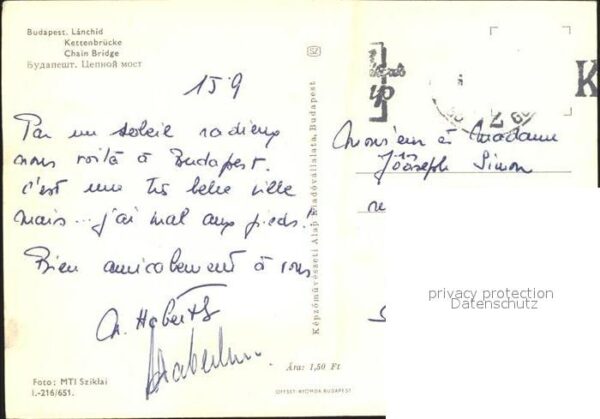 Budapest. Lánchíd
Kettenbrücke
Chain Bridge
Будапешт. Цепной мост
15 9
Par un soleil radieux
nous voilà à Budapest.
c'est une très belle ville
mais... j'ai mal aux pieds!
Bien amicalement à vous
Foto: MTI Sziklai
I.-216/651.
Képzőművészeti Alap Kiadóvállalata, Budapest
Ára: 1,50 Ft
OFFSET-NYOMDA BUDAPEST
K
Monsieur & Madame
Joseph Simon
privacy protection
Datenschutz